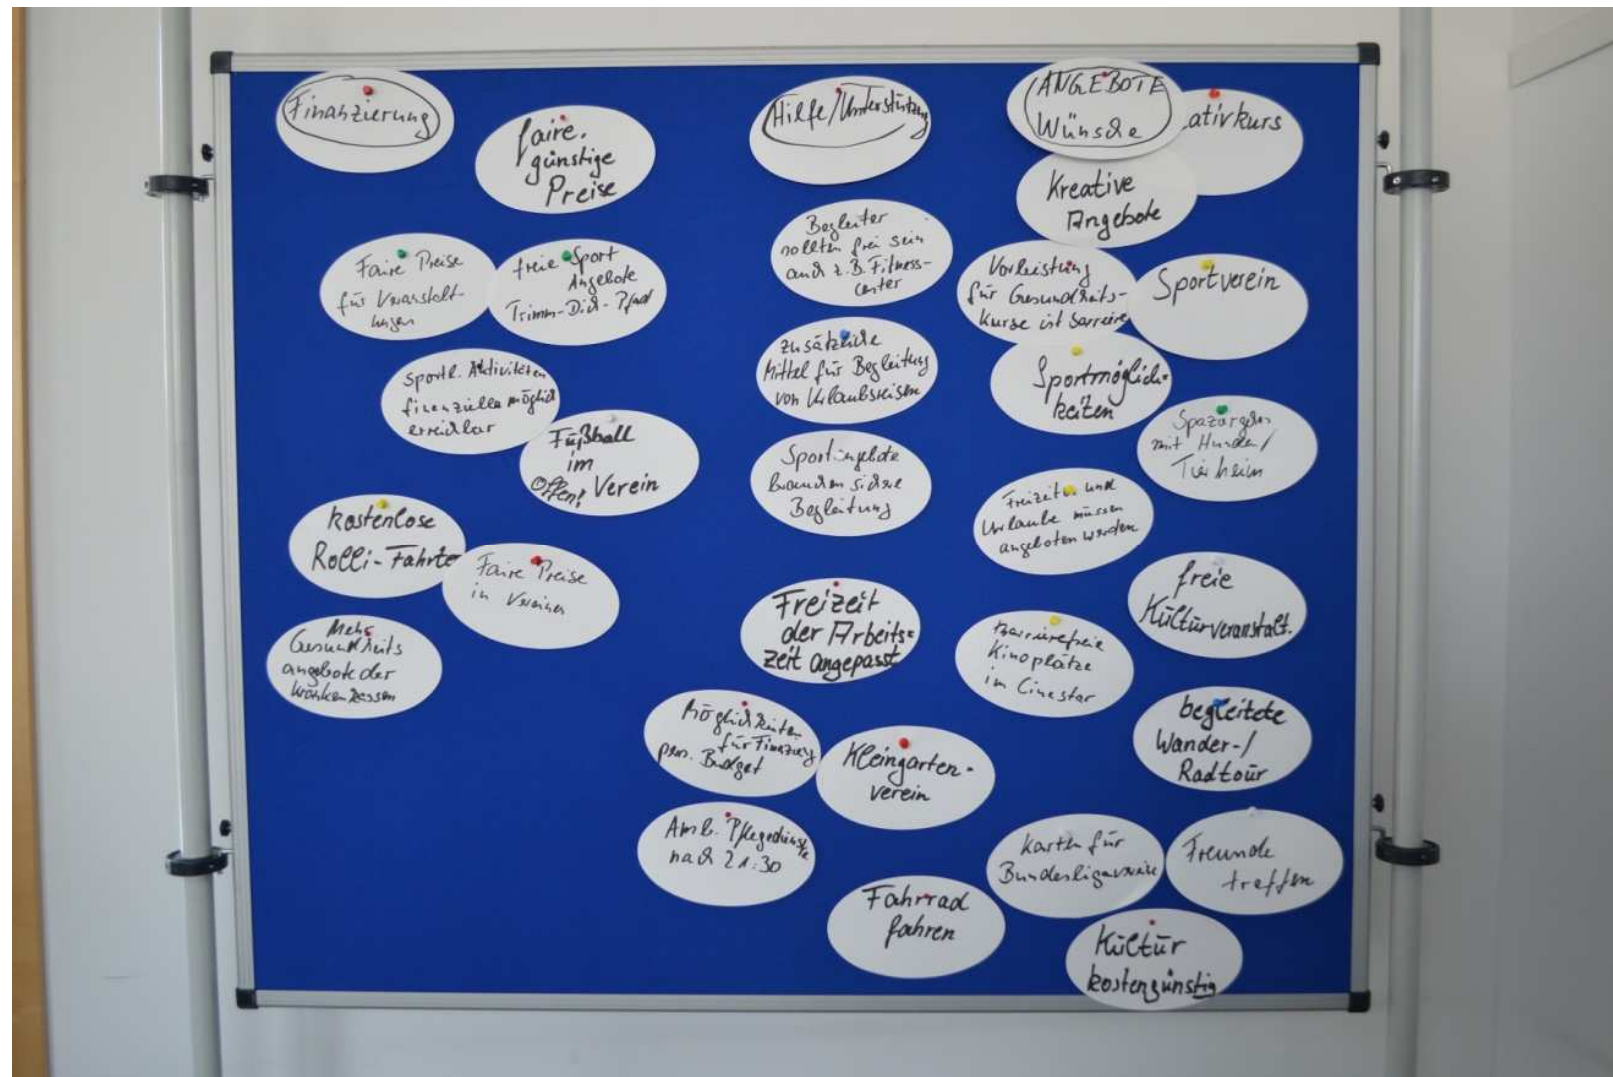 Finanzierung
faire,
günstige
Preise
Faire Preise
für Veranstalt-
ungen
freie Sport
Angebote
Trimm-Dich-Pfad
sportl. Aktivitäten
finanzielle möglich
erreichbar
Fußball
im
Offen! Verein
kostenlose
Rolli-Fahrte
Faire Preise
in Vereinen
Mehr
Gesundheits
angebote der
Krankenkassen
Hilfe/Unterstützung
Begleiter
sollten frei sein
auch z.B. Fitness-
center
zusätzliche
Mittel für Begleitung
von Urlaubsreisen
Sportangebote
brauchen sichere
Begleitung
Freizeit
der Arbeits-
zeit angepasst
Möglichkeiten
für Finanzierung
pers. Budget
Kleingarten-
verein
Amb. Pflegedienste
nach 21:30
Fahrrad
fahren
ANGEBOTE
Wünsche
ativkurs
Kreative
Angebote
Vorleistung
für Gesundheits-
Kurse ist Barriere
Sportverein
Sportmöglich-
keiten
Spazargehn
mit Hunden/
Tierheim
Freizeit. und
Urlaube müssen
angeboten werden
freie
Kulturveranstalt.
Barrierefreie
Kinoplätze
im Cinestar
begleitete
Wander-/
Radtour
Karten für
Bundesligavereine
Freunde
treffen
Kultur
kostengünstig